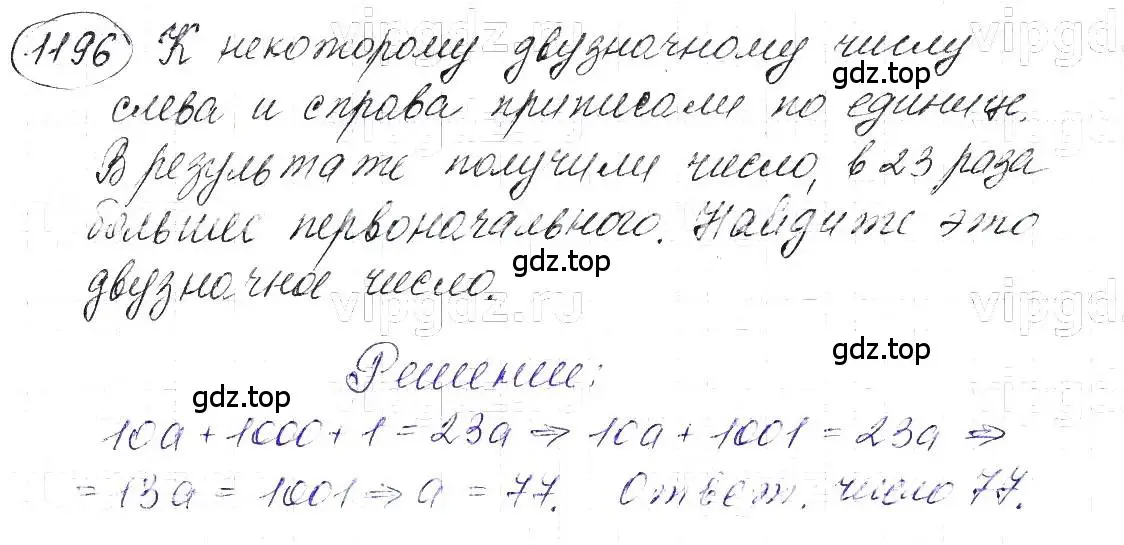 1196 К некоторому двузначному числу
gdz.top
слева и справа приписали по единице.
В результате получили число, в 23 раза
больше первоначального. Найдите это
gdz.top
двузначное число.
vipgdz.ru
Решение:
gdz.top
gdz.top
10a + 1000 + 1 = 23a ⇒ 10a + 1001 = 23a ⇒
= 13a = 1001 ⇒ a = 77. Ответ. число 77.